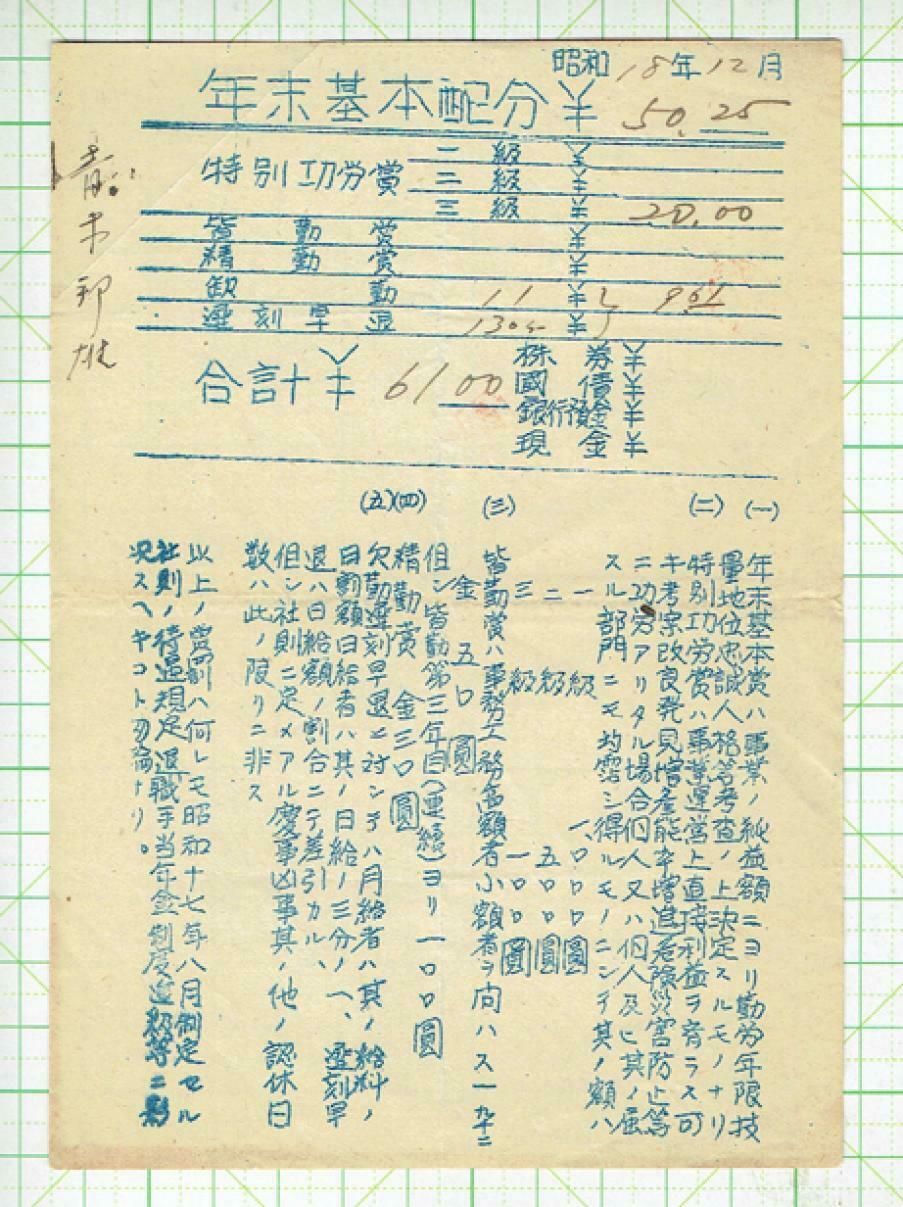 昭和 18年12月
年末基本配分 ¥ 50.25
特別功労賞
一級 ¥
二級 ¥
三級 ¥ 20.00
皆勤賞 ¥
精勤賞 ¥
欠勤 11 ¥
遅刻早退 ¥
9.61
合計 ¥ 61.00
株券 ¥
國債 ¥
銀行預金 ¥
現金 ¥
青木邦雄
(一) 年末基本賞ハ事業ノ純益額ニヨリ勤務年限技
量地位忠誠人格等考査ノ上決定スルモノナリ
(二) 特別功労賞ハ事業運営上直接利益ヲ齎ラス可
キ考案改良発見増産能率増進危険災害防止等
ニ功労アリタル場合個人又ハ個人及ビ其ノ属
スル部門ニモ均霑シ得ルモノニシテ其ノ額ハ
一級 一、〇〇〇圓
二級 五〇〇圓
三級 一〇〇圓
(三) 皆勤賞ハ事務工務高額者小額者ヲ問ハス一九ニ
金五〇圓
但シ皆勤第三年目(連続)ヨリ一〇〇圓
(四) 精勤賞 金三〇圓
(五) 欠勤遅刻早退ニ対シテハ月給者ハ其ノ給料ノ
日割額日給者ハ其ノ日給ノ三分ノ一、遅刻早
退ハ日給額ノ割合ニテ差引カル、
但シ社則ニ定メアル慶事凶事其ノ他ノ認休日
数ハ此ノ限リニ非ス
以上ノ賞罰ハ何レモ昭和十七年八月制定セル
社則ノ待遇規定退職手当年金制度進級等ニ影
况スヘキコト勿論ナリ。